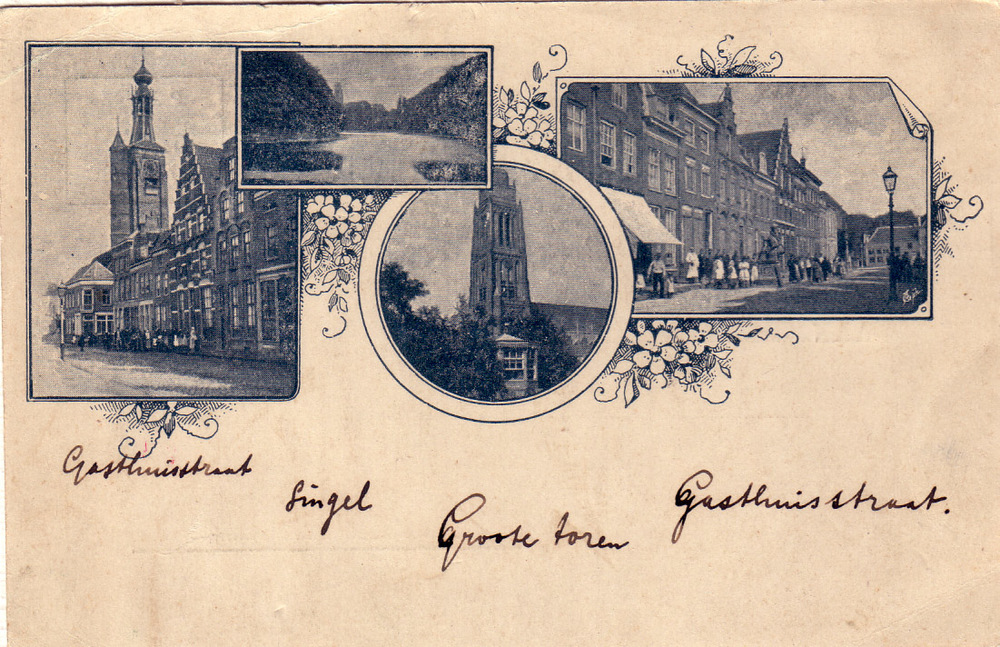 Gasthuisstraat
Singel
Groote toren
Gasthuisstraat.